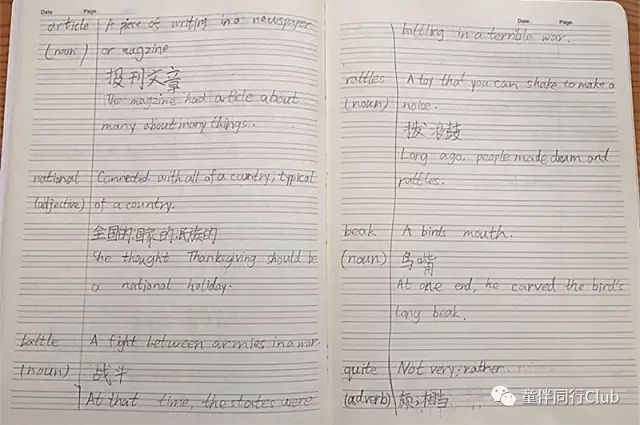 Date Page
article A piece of writing in a newspaper
(noun) or magzine
报刊文章
The magzine had article about
many about many things.
national Connected with all of a country; typical
(adjective) of a country.
全国的;国家的;民族的
She thought Thanksgiving should be
a national holiday.
battle A fight between armies in a war.
(noun) 战斗
At that time, the states were
Date Page
battling in a terrible war.
rattles A toy that you can shake to make a
(noun) noise.
拨浪鼓
Long ago, people made drum and
rattles.
beak A birds mouth.
(noun) 鸟嘴
At one end, he carved the bird's
long beak.
quite Not very; rather.
(adverb) 颇;相当
童伴同行Club